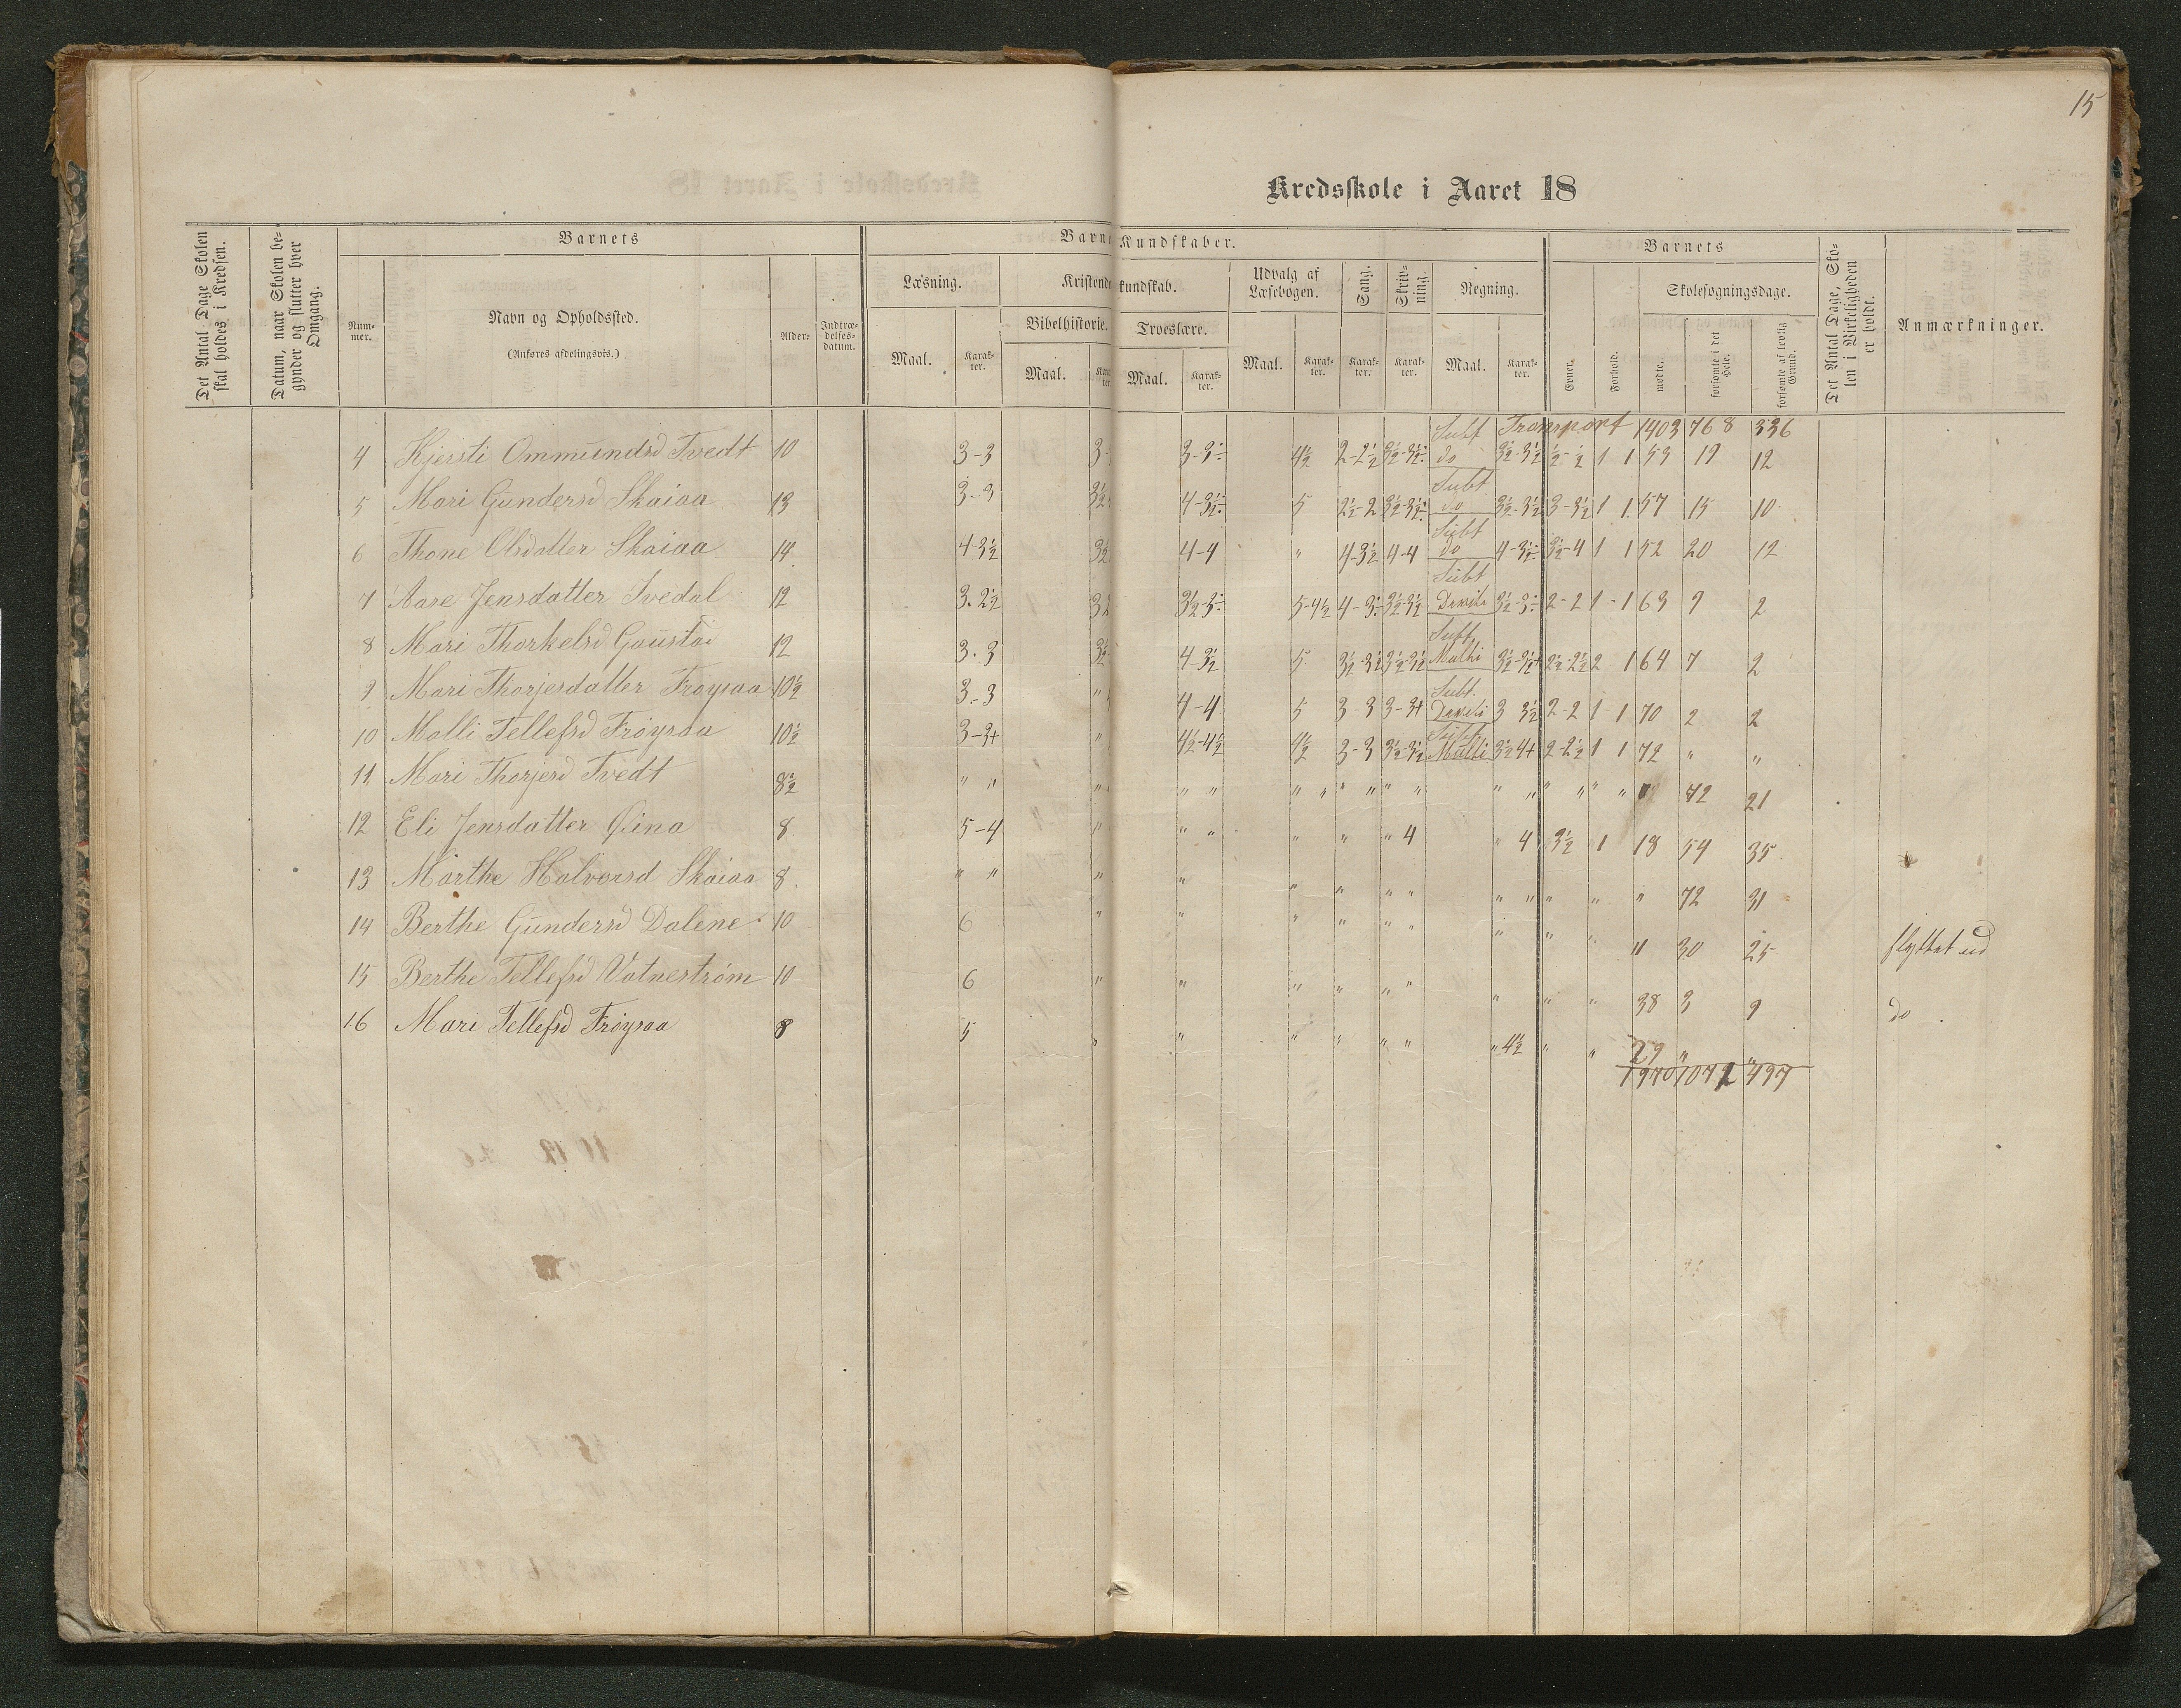 15
Kredsskole i Aaret 18
Det Antal Dage Skolen skal holdes i Kredsen.
Datum, naar Skolen begynder og slutter hver Omgang.
Barnets
Nummer.
Navn og Opholdssted.
(Anføres afdelingsvis.)
Alder.
Indtrædelsesdatum.
Barne Kundskaber.
Læsning.
Maal.
Karakter.
Kristendo kundskab.
Bibelhistorie.
Maal.
Troeslære.
Maal.
Karakter.
Udvalg af Læsebogen.
Maal.
Karakter.
Sang.
Karakter.
Skrivning.
Karakter.
Regning.
Maal.
Karakter.
Barnets
Evner.
Forhold.
Skolesøgningsdage.
mødte.
forsømte i det Hele.
forsømte af lovlig Grund.
Det Antal Dage, Skolen i Virkeligheden er holdt.
Anmærkninger.
Transport 1403 768 336
4 Kjersti Ommundsd Tvedt 10 3-3 3-3÷ 4½ 2-2½ 3½-3½÷ Subt do 3½-3½ 1 1 53 19 12
5 Mari Gundersd Skaiaa 13 3-3 3½ 4-3½÷ 5 2½-2 3½-3½÷ Subt do 3½-3½ 3-3½ 1 1 57 15 10
6 Thone Olsdatter Skaiaa 14 4-3½ 3½ 4-4 " 4-3½ 4-4 Subt do 4-3½÷ 3½-4 1 1 52 20 12
7 Aase Jensdatter Tvedal 12 3-2½ 3½-3÷ 5-4½ 4-3÷ 3½-3½ Subt 3½-3÷ 2-2 1-1 63 9 2
8 Mari Thorkelsd Gaustad 12 3-3 3½ 4-3½ 5 3½-3½ 3½-3½ Subt Multi 3½-3½+ 2½-2½ 2 1 64 7 2
9 Mari Thorjesdatter Frøysaa 10½ 3-3 " 4-4 5 3-3 3-3+ Subt 3 3½ 2-2 1-1 70 2 2
10 Malli Tellefsd Frøysaa 10½ 3-3+ " 4½-4½ 4½ 3-3 3½-3½ Subt Multi 3½ 4+ 2-2½ 1 1 72 " "
11 Mari Thorjesd Tvedt 8½ " " " " " " " " " " " " " " " " 72 21
12 Eli Jensdatter Øina 8 5-4 " " " " " " 4 " 4 3½ 1 18 54 35
13 Marthe Halvorsd Skaiaa 8 " " " " " " " " " " " " " 72 31
14 Berthe Gundersd Dalene 10 6 " " " " " " " " " " 30 25 flyttet ud
15 Berthe Tellefsd Vatnestrøm 10 6 " " " " " " " " " 38 3 9 do
16 Mari Tellefsd Frøysaa 8 5 " " " " " " " 4½ " " 29 " "
1970 1071 497